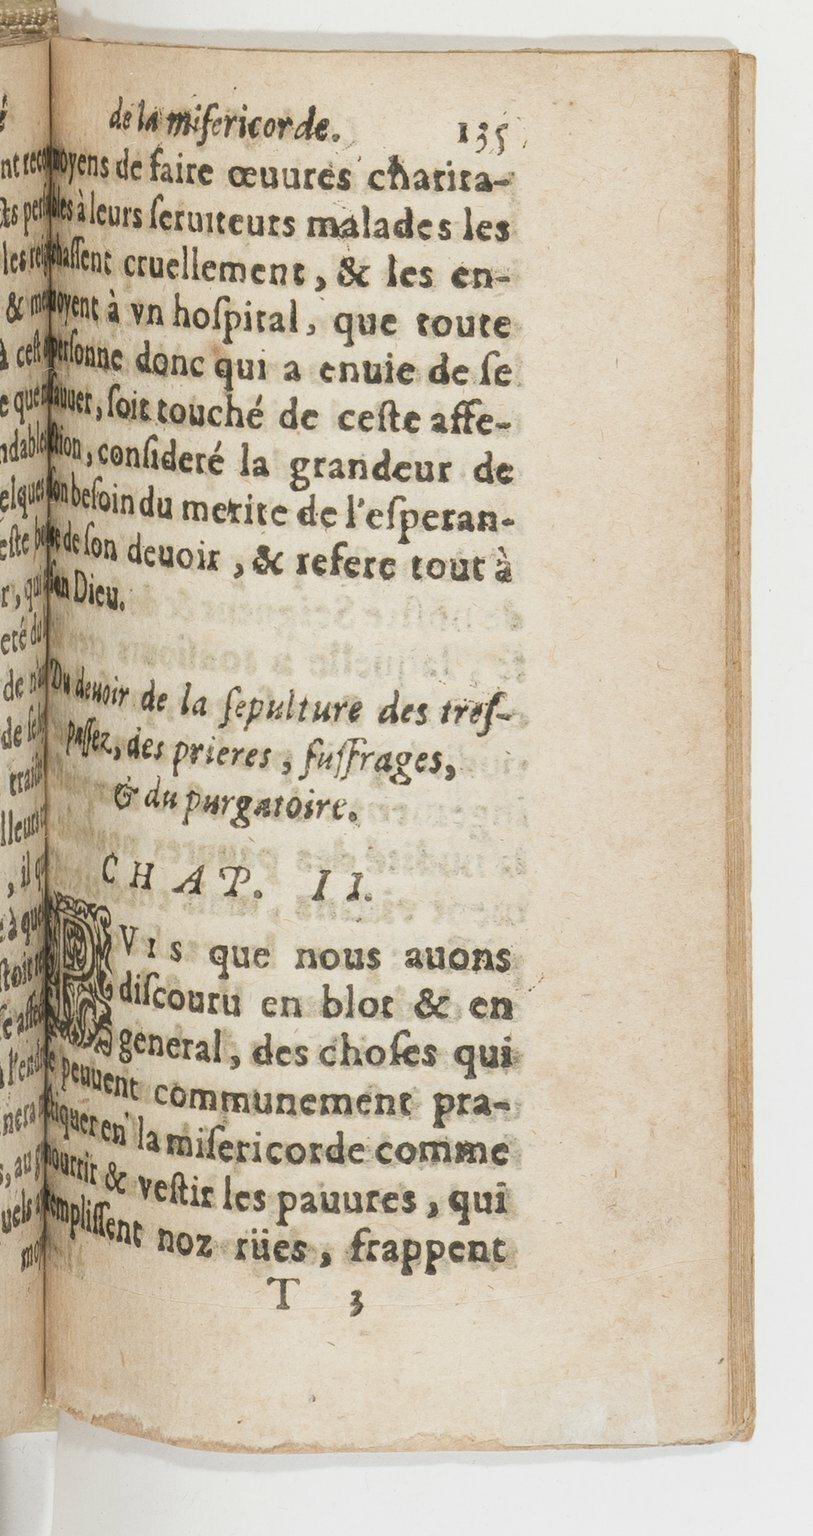 de la miſericorde. 135
moyens de faire œuures charita-
bles à leurs ſeruiteurs malades les
chaſſent cruellement, & les en-
uoyent à vn hoſpital, que toute
perſonne donc qui a enuie de ſe
ſauuer, ſoit touché de ceſte affe-
ction, conſideré la grandeur de
ſon beſoin du merite de l'eſperan-
ce de ſon deuoir, & refere tout à
ſon Dieu.
Du deuoir de la ſepulture des treſ-
paſſez, des prieres, ſuffrages,
& du purgatoire.
CHAP. II.
PVIS que nous auons
diſcouru en bloc & en
general, des choſes qui
ſe peuuent communement pra-
tiquer en la miſericorde comme
nourrir & veſtir les pauures, qui
rempliſſent noz rües, frappent
T 3